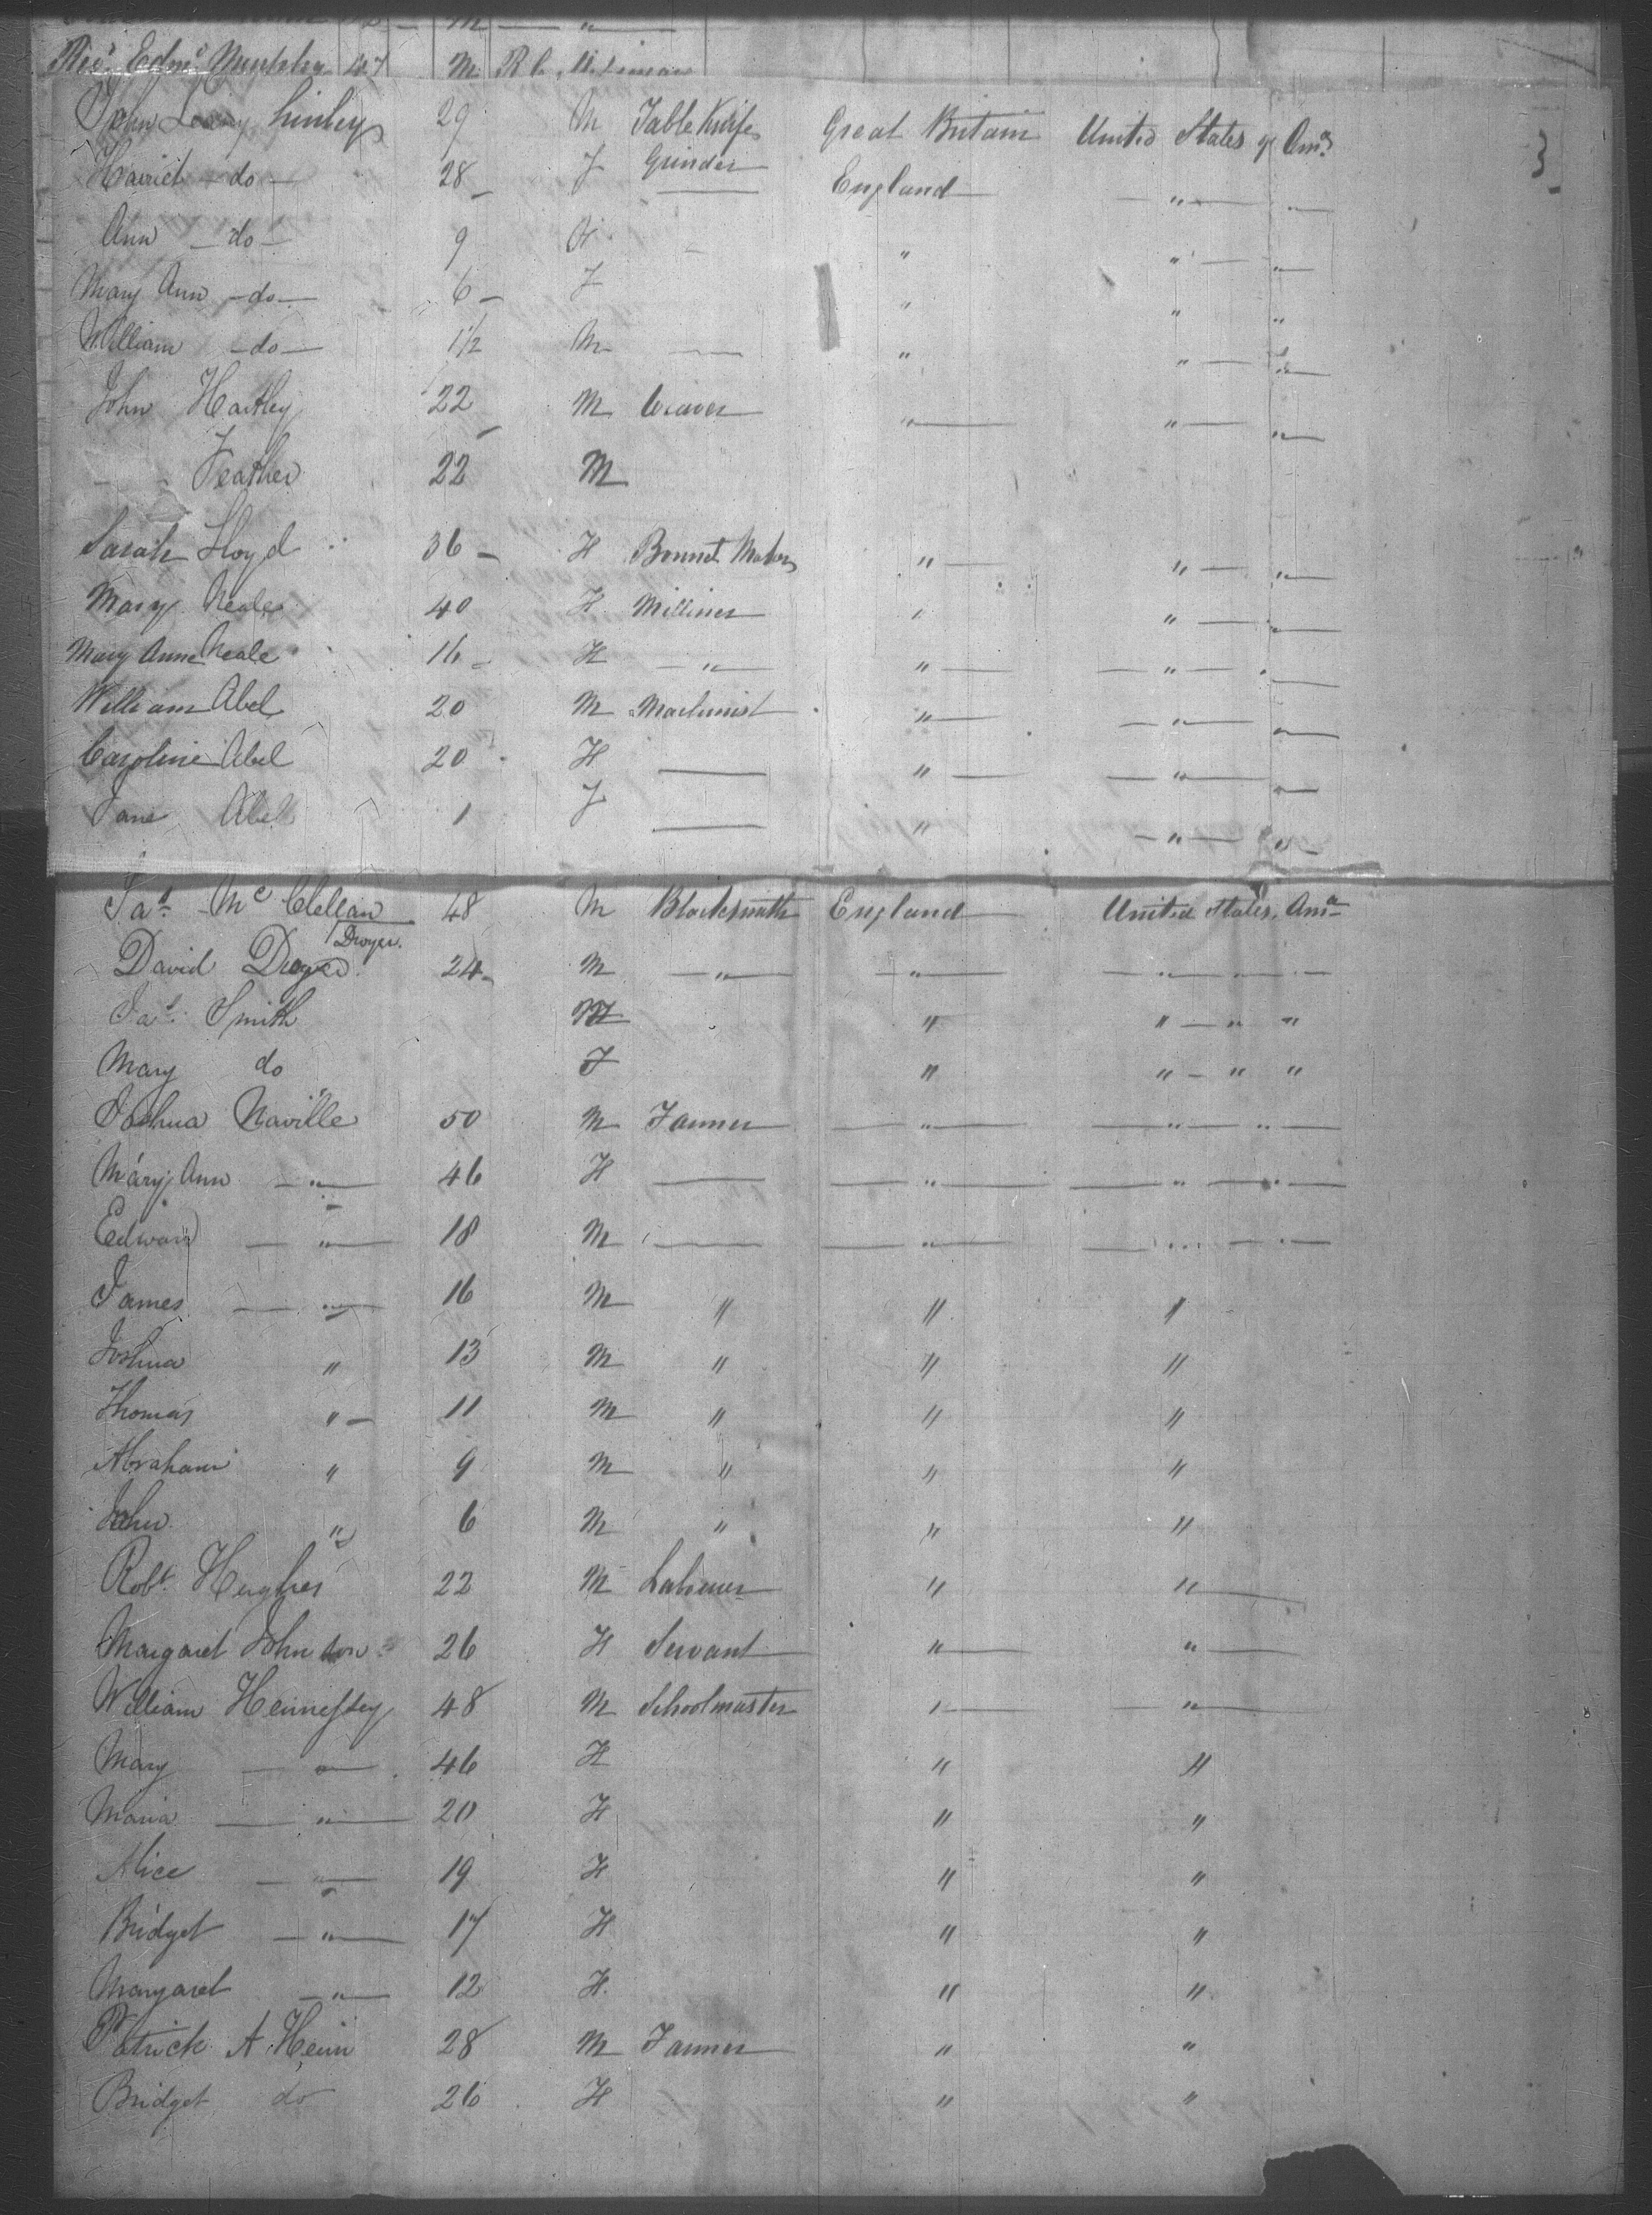 M — "
Edmd 47 M R C
John Linley 29 M Table Knife Great Britain United States of Ama 3
Harriet — do — 28 — F Grinder — England — " — " —
Ann — do — 9 F - " " — " —
Mary Ann — do — 6 — F " " "
William — do — 1 1/2 M — " " — " —
John Hartley 22 M Weaver " — " — " —
- - Feather 22 M
Sarah Lloyd 36 — F Bonnet Maker " — " — " —
Mary Neale 40 F Milliner " " — " —
Mary Anne Neale 16 — F — " — " — — " — " —
William Abel 20 M Machinist " — — " — " —
Caroline Abel 20 F — " — — " — " —
Jane Abel 1 F — " — " — " —
Jas Mc Clellan 48 M Blacksmith England United States, Ama
Dwyer.
David Dwyer 24 — M — " — — " — — " — " —
Jas Smith M " " — " "
Mary do F " " — " "
Joshua Naville 50 M Farmer — " — — " — " —
Mary Ann — " — 46 F — — " — — " — " —
Edward — " — 18 M — — " — — " — " —
James — " — 16 M " " "
Joshua " 13 M " " "
Thomas " — 11 M " " "
Abraham " 9 M " " "
John " 6 M " " "
Robt. Hughes 22 M Labourer " " —
Margaret Johnston 26 F Servant " — " —
William Hennessey 48 M Schoolmaster " — " —
Mary — " — 46 F " "
Maria — " — 20 F " "
Alice — " — 19 F " "
Bridget — " — 17 F " "
Margaret — " — 12 F " "
Patrick A. 28 M Farmer " "
Bridget do 26 F " "